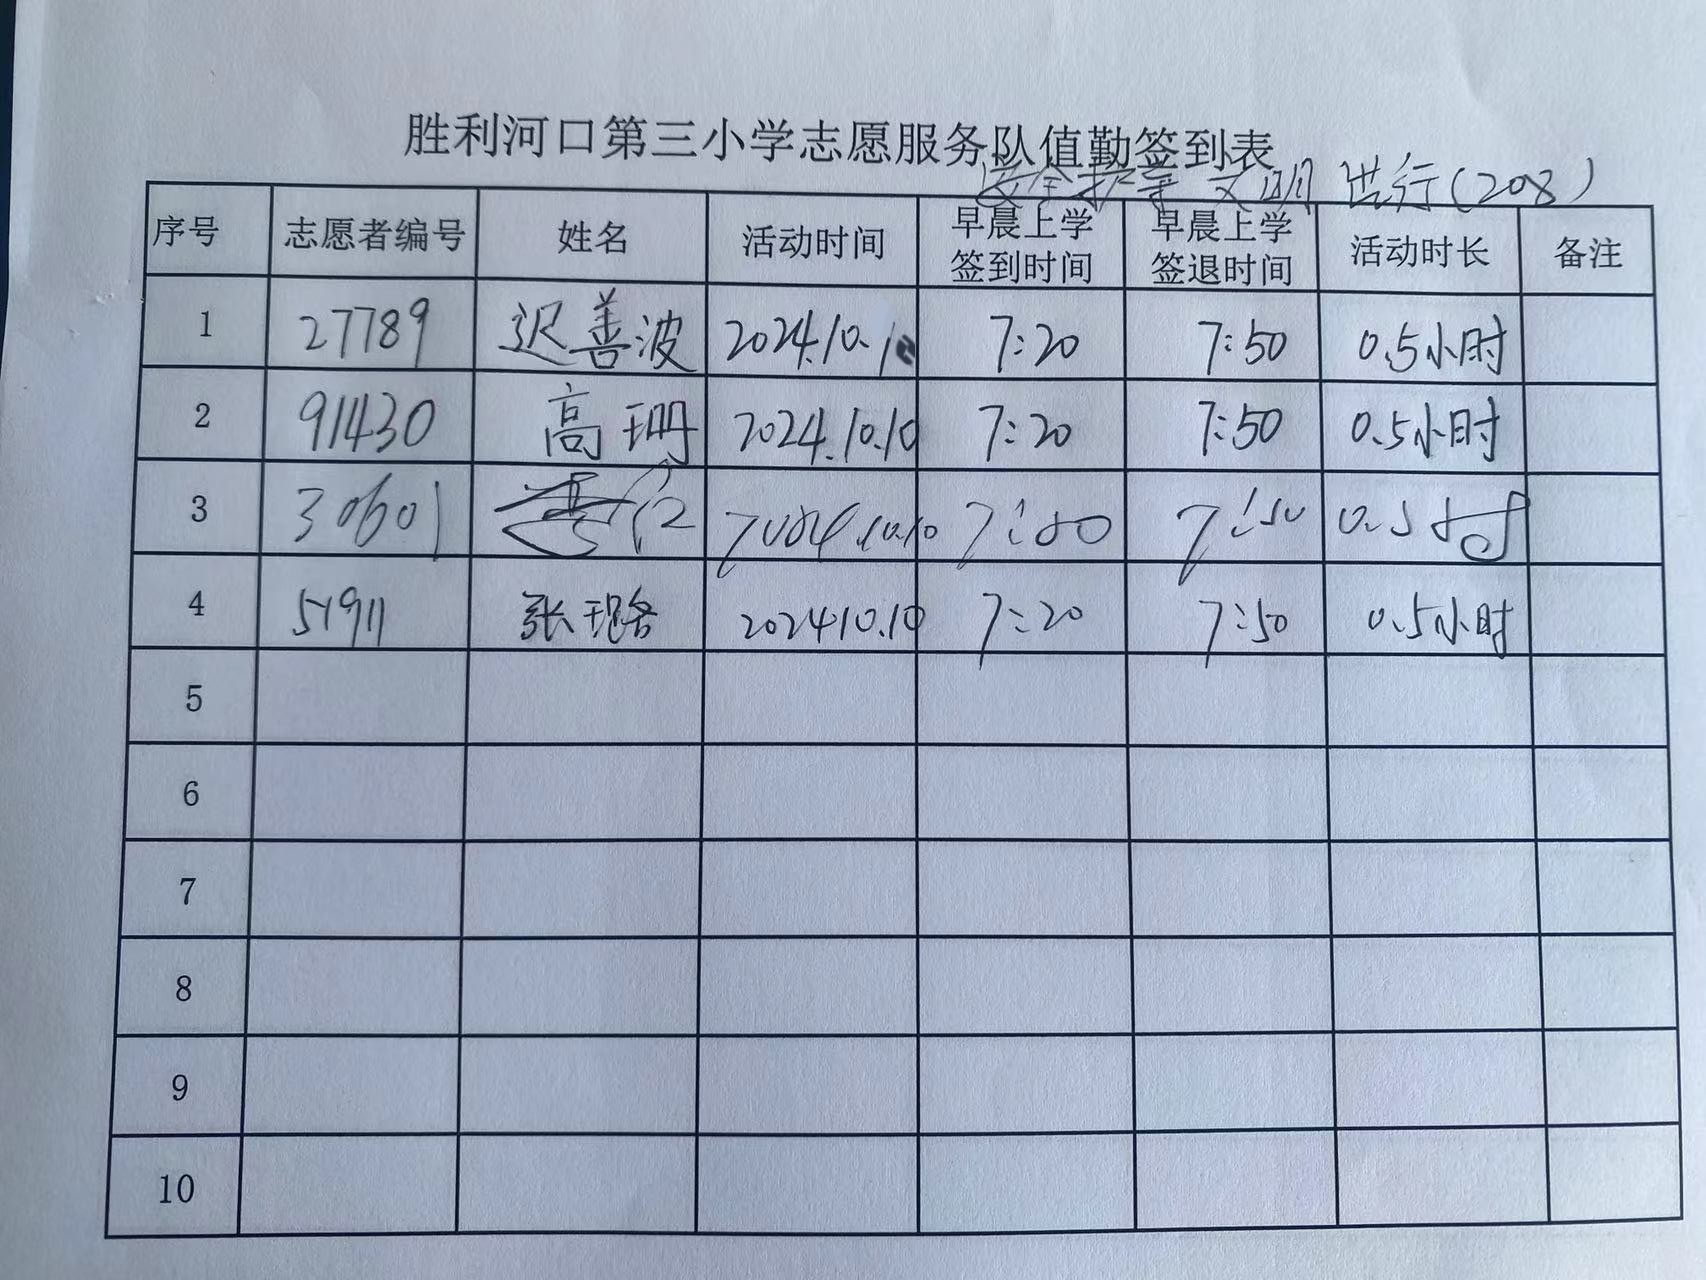 胜利河口第三小学志愿服务队值勤签到表
安全 文明 出行(208)
序号 志愿者编号 姓名 活动时间 早晨上学签到时间 早晨上学签退时间 活动时长 备注
1 27789 迟善波 2024.10.10 7:20 7:50 0.5小时
2 91430 高珊 2024.10.10 7:20 7:50 0.5小时
3 30601 2024.10.10 7:50 0.5
4 51911 张璐 2024.10.10 7:20 7:50 0.5小时
5
6
7
8
9
10